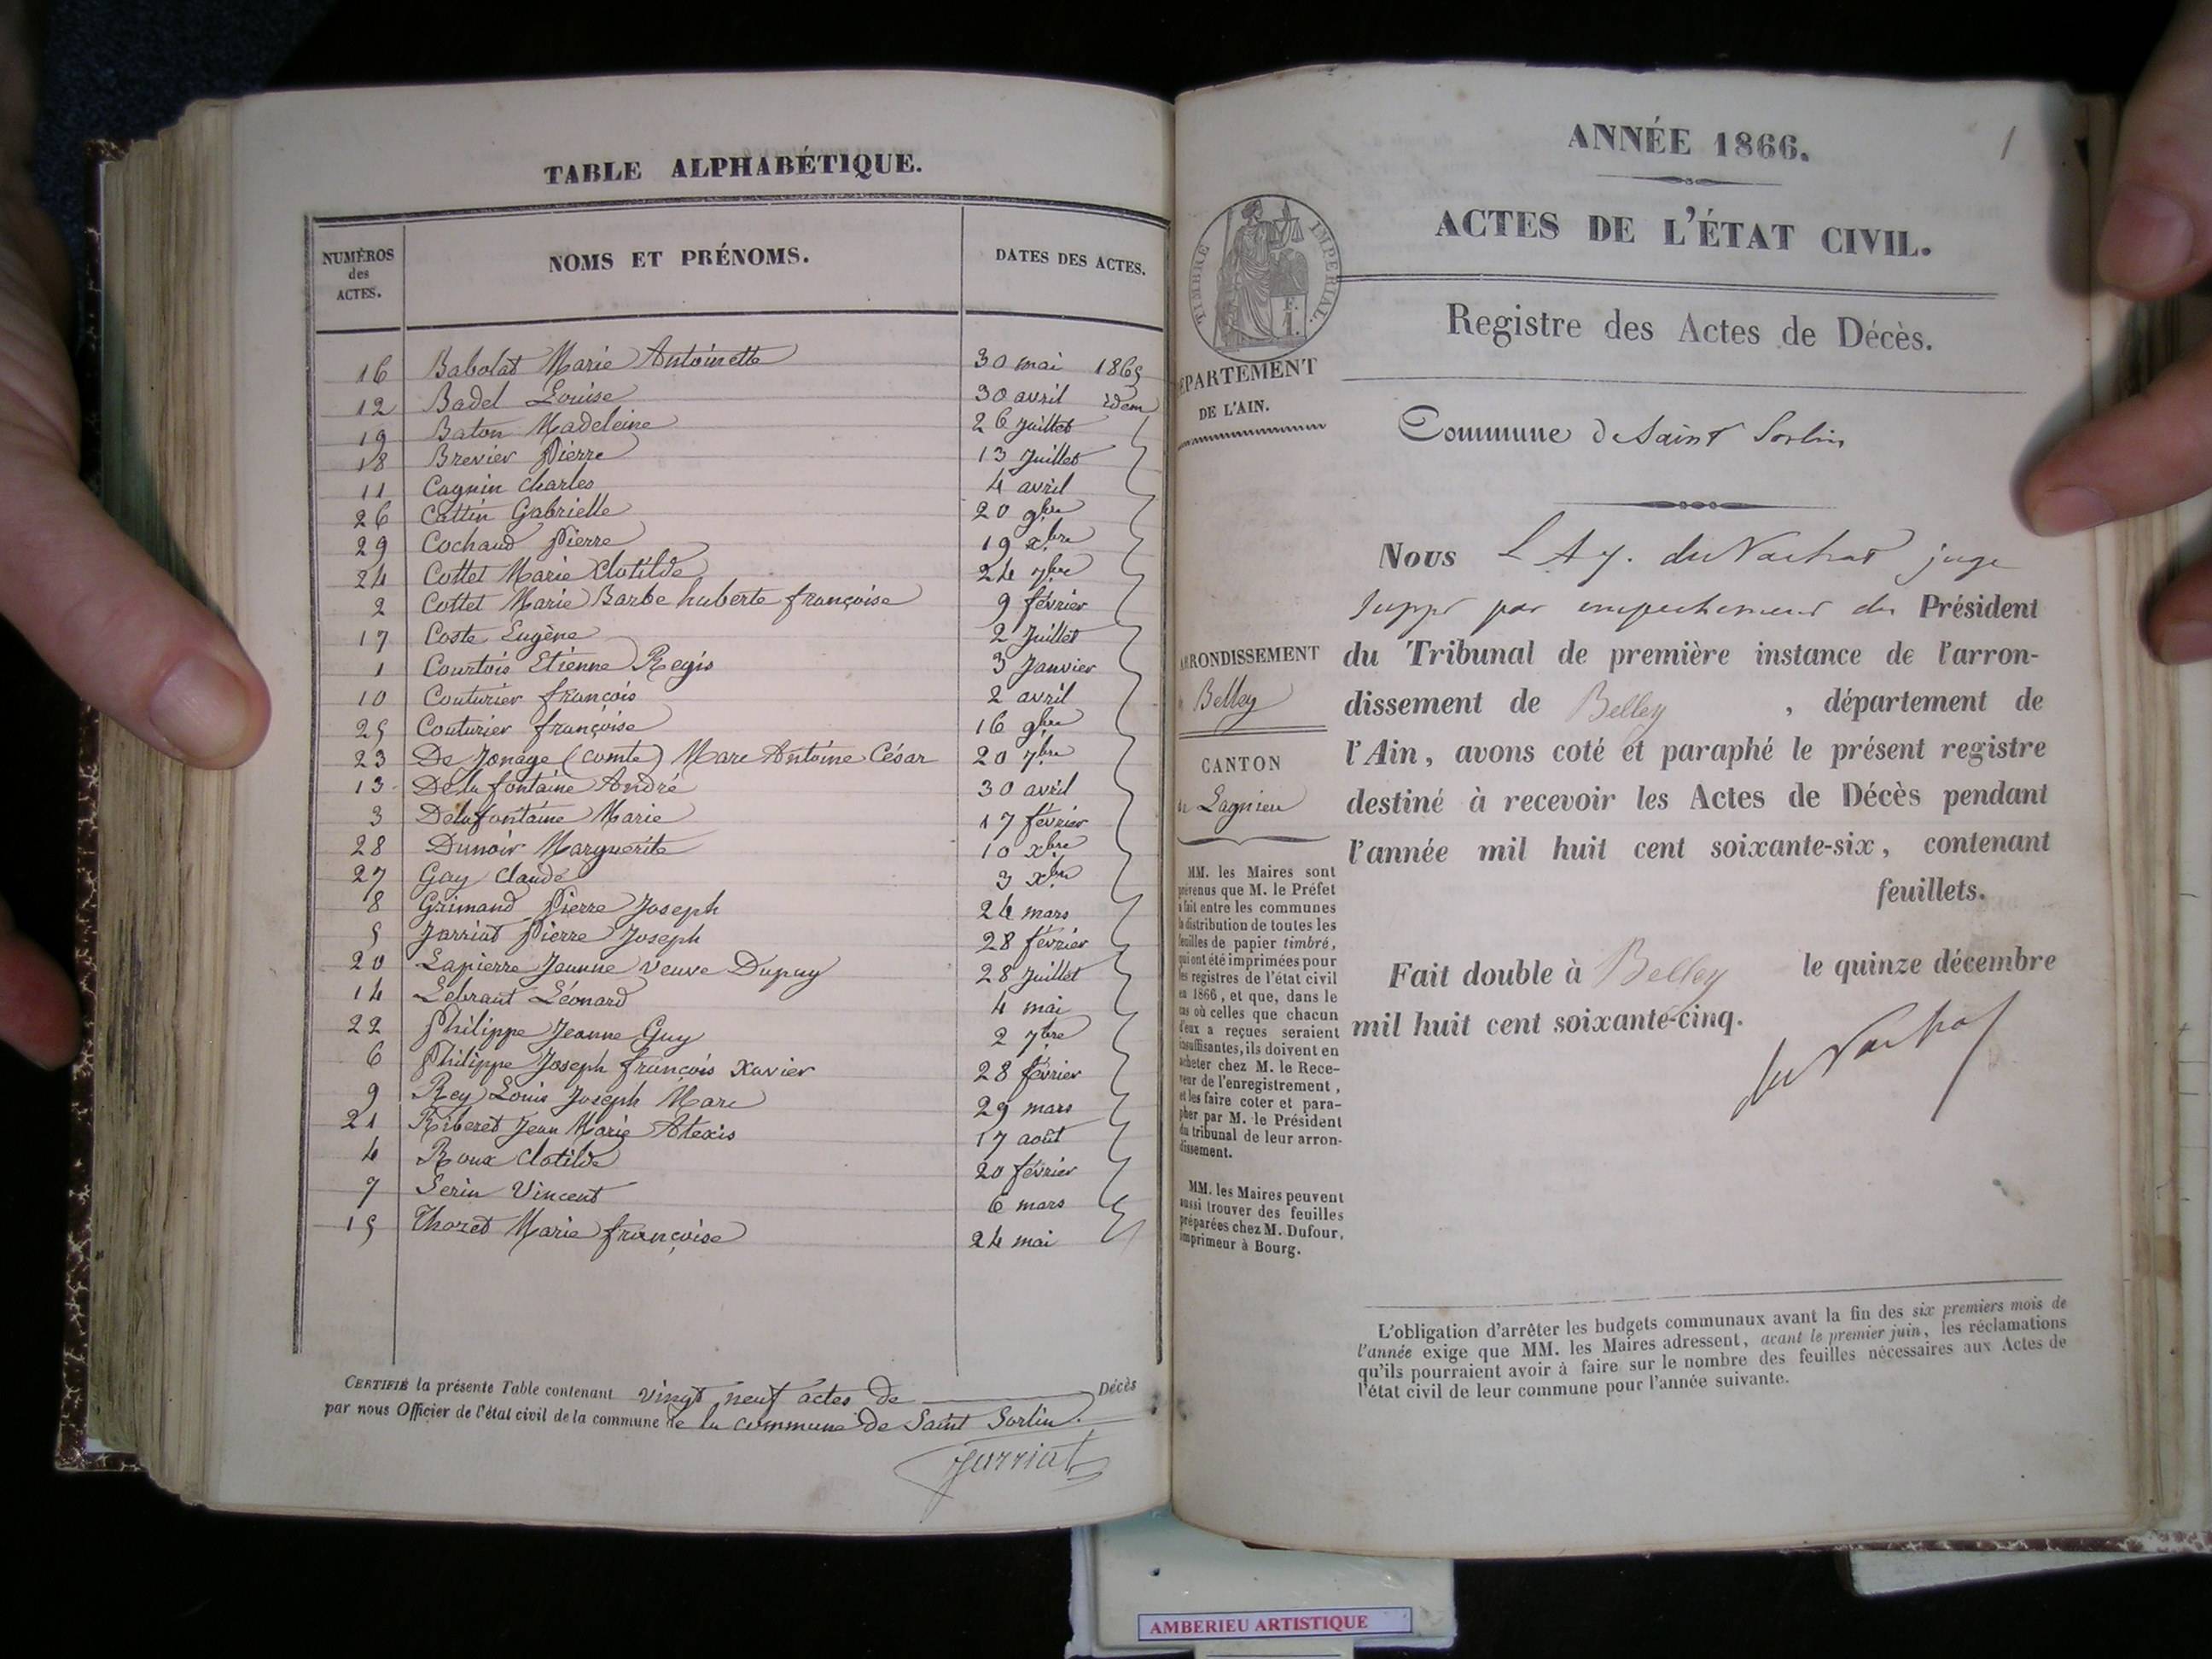 TABLE ALPHABÉTIQUE.
NUMÉROS des ACTES. NOMS ET PRÉNOMS. DATES DES ACTES.
16 Babolat Marie Antoinette 30 mai 1865
12 Badel Louise 30 avril idem
19 Baton Madeleine 26 Juillet
18 Brevier Pierre 13 Juillet
11 Cagnin Charles 4 avril
26 Cattin Gabrielle 20 9bre
29 Cochaud Pierre 19 xbre
24 Cottet Marie Clotilde 24 7bre
2 Cottet Marie Barbe huberte françoise 9 février
17 Coste Eugène 2 Juillet
1 Courtois Etienne Regis 3 Janvier
10 Couturier françois 2 avril
25 Couturier françoise 16 9bre
23 De Jonage (comte) Marc Antoine César 20 7bre
13 Delafontaine André 30 avril
3 Delafontaine Marie 17 février
28 Dunoir Marguerite 10 xbre
27 Gay Claude 3 xbre
8 Grimand Pierre Joseph 24 mars
5 Jarriat Pierre Joseph 28 février
20 Lapierre Jeanne veuve Dupuy 28 Juillet
14 Lebraut Léonard 4 mai
22 Philippe Jeanne Guy 2 7bre
6 Philippe Joseph françois Xavier 28 février
9 Rey Louis Joseph Marc 29 mars
21 Riberet Jean Marie Alexis 17 août
4 Roux Clotilde 20 février
7 Serin Vincent 6 mars
15 Thoret Marie françoise 24 mai
CERTIFIÉ la présente Table contenant vingt neuf actes de Décès
par nous Officier de l'état civil de la commune de la commune de Saint Sorlin.
Jarriat
ANNÉE 1866. 1
ACTES DE L'ÉTAT CIVIL.
TIMBRE IMPÉRIAL.
Registre des Actes de Décès.
DÉPARTEMENT
DE L'AIN.
Commune de Saint Sorlin
Nous L A J. du Vachat juge
suppt par empechement du Président
du Tribunal de première instance de l'arron-
dissement de Belley, département de
l'Ain, avons coté et paraphé le présent registre
destiné à recevoir les Actes de Décès pendant
l'année mil huit cent soixante-six, contenant
feuillets.
Fait double à Belley le quinze décembre
mil huit cent soixante-cinq.
du Vachat
ARRONDISSEMENT
Belley
CANTON
de Lagnieu
MM. les Maires sont
prévenus que M. le Préfet
a fait entre les communes
la distribution de toutes les
feuilles de papier timbré,
qui ont été imprimées pour
les registres de l'état civil
en 1866, et que, dans le
cas où celles que chacun
d'eux a reçues seraient
insuffisantes, ils doivent en
acheter chez M. le Rece-
veur de l'enregistrement,
et les faire coter et para-
pher par M. le Président
du tribunal de leur arron-
dissement.
MM. les Maires peuvent
aussi trouver des feuilles
préparées chez M. Dufour,
imprimeur à Bourg.
L'obligation d'arrêter les budgets communaux avant la fin des six premiers mois de
l'année exige que MM. les Maires adressent, avant le premier juin, les réclamations
qu'ils pourraient avoir à faire sur le nombre des feuilles nécessaires aux Actes de
l'état civil de leur commune pour l'année suivante.
AMBERIEU ARTISTIQUE